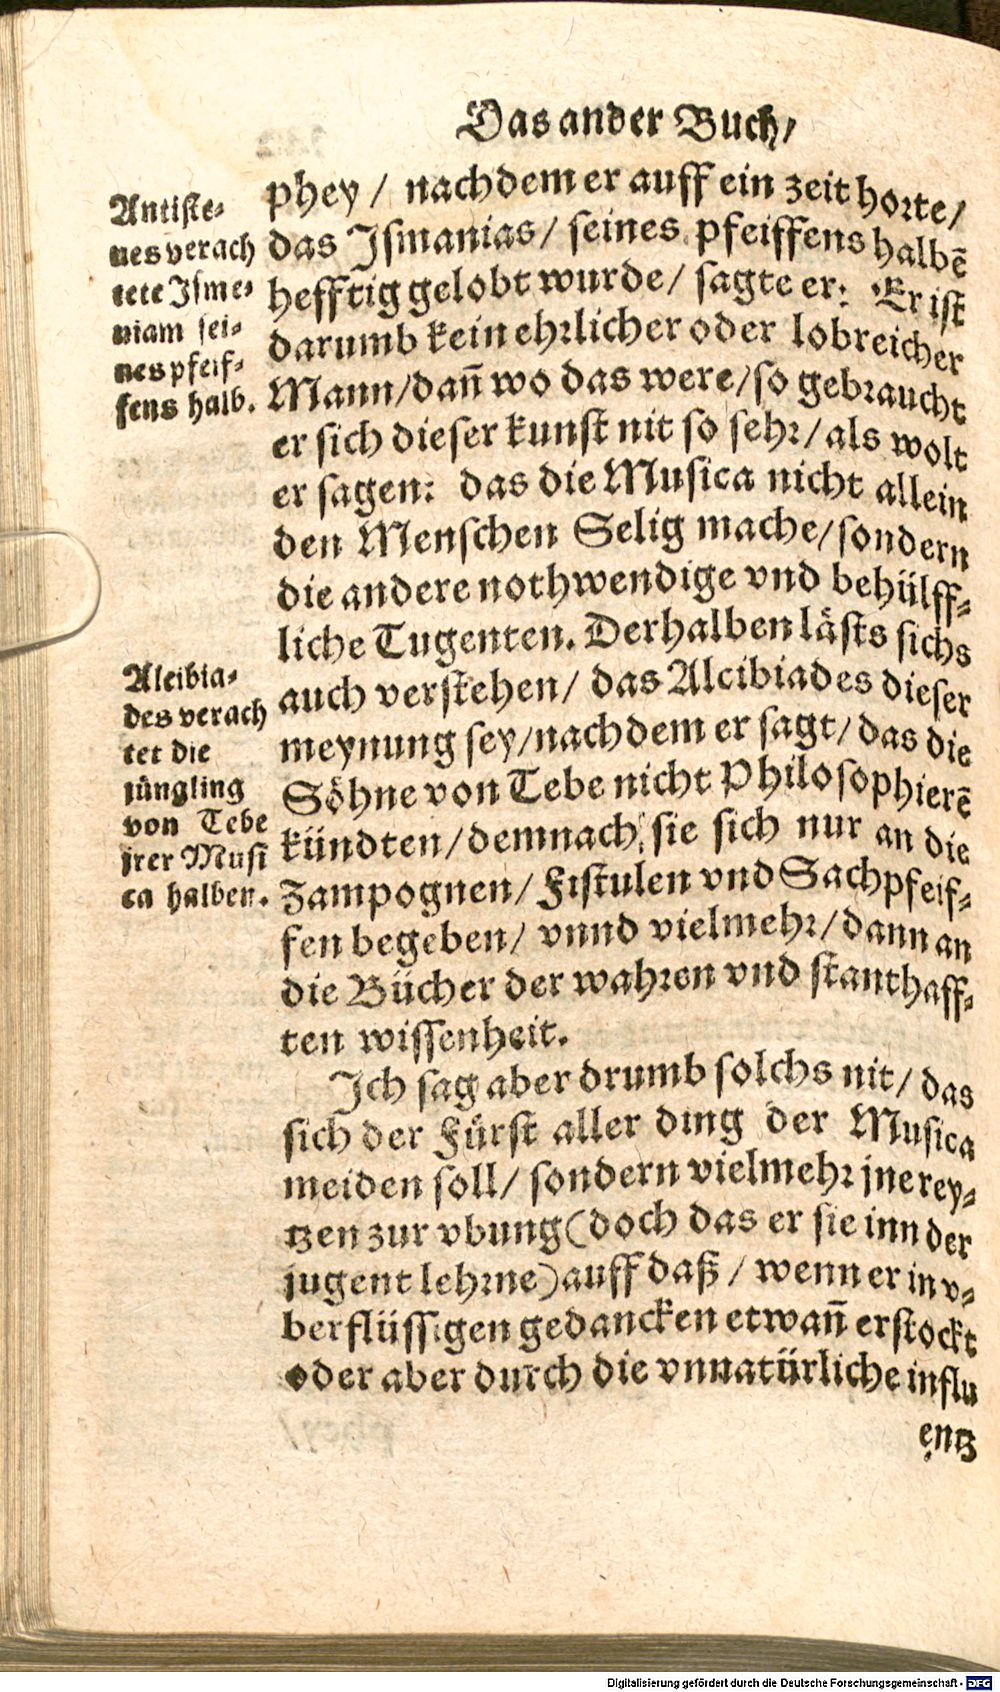 Das ander Buch/
phey / nachdem er auff ein zeit horte/
das Ismanias/ seines pfeiffens halbē
hefftig gelobt wurde/ sagte er: Er ist
darumb kein ehrlicher oder lobreicher
Mann/dañ wo das were/so gebraucht
er sich dieser kunst nit so sehr/als wolt
er sagen: das die Musica nicht allein
den Menschen Selig mache/sondern
die andere nothwendige vnd behülff-
liche Tugenten. Derhalben läßts sichs
auch verstehen/ das Alcibiades dieser
meynung sey/nachdem er sagt/das die
Söhne von Tebe nicht Philosophierē
kündten/demnach sie sich nur an die
Zampognen/Fistulen vnd Sachpfeif-
fen begeben/ vnnd vielmehr/dann an
die Bücher der wahren vnd stanthaff-
ten wissenheit.
Ich sag aber drumb solchs nit/das
sich der Fürst aller ding der Musica
meiden soll/sondern vielmehr jne rey-
tzen zur vbung(doch das er sie inn der
jugent lehrne)auff daß/wenn er in v-
berflüssigen gedancken etwañ erstockt
oder aber durch die vnnatürliche influ
entz
Antiste-
nes verach
tete Isme-
niam sei-
nes pfeif-
fens halb.
Alcibia-
des verach
tet die
jüngling
von Tebe
jrer Musi
ca halben.
Digitalisierung gefördert durch die Deutsche Forschungsgemeinschaft - DFG